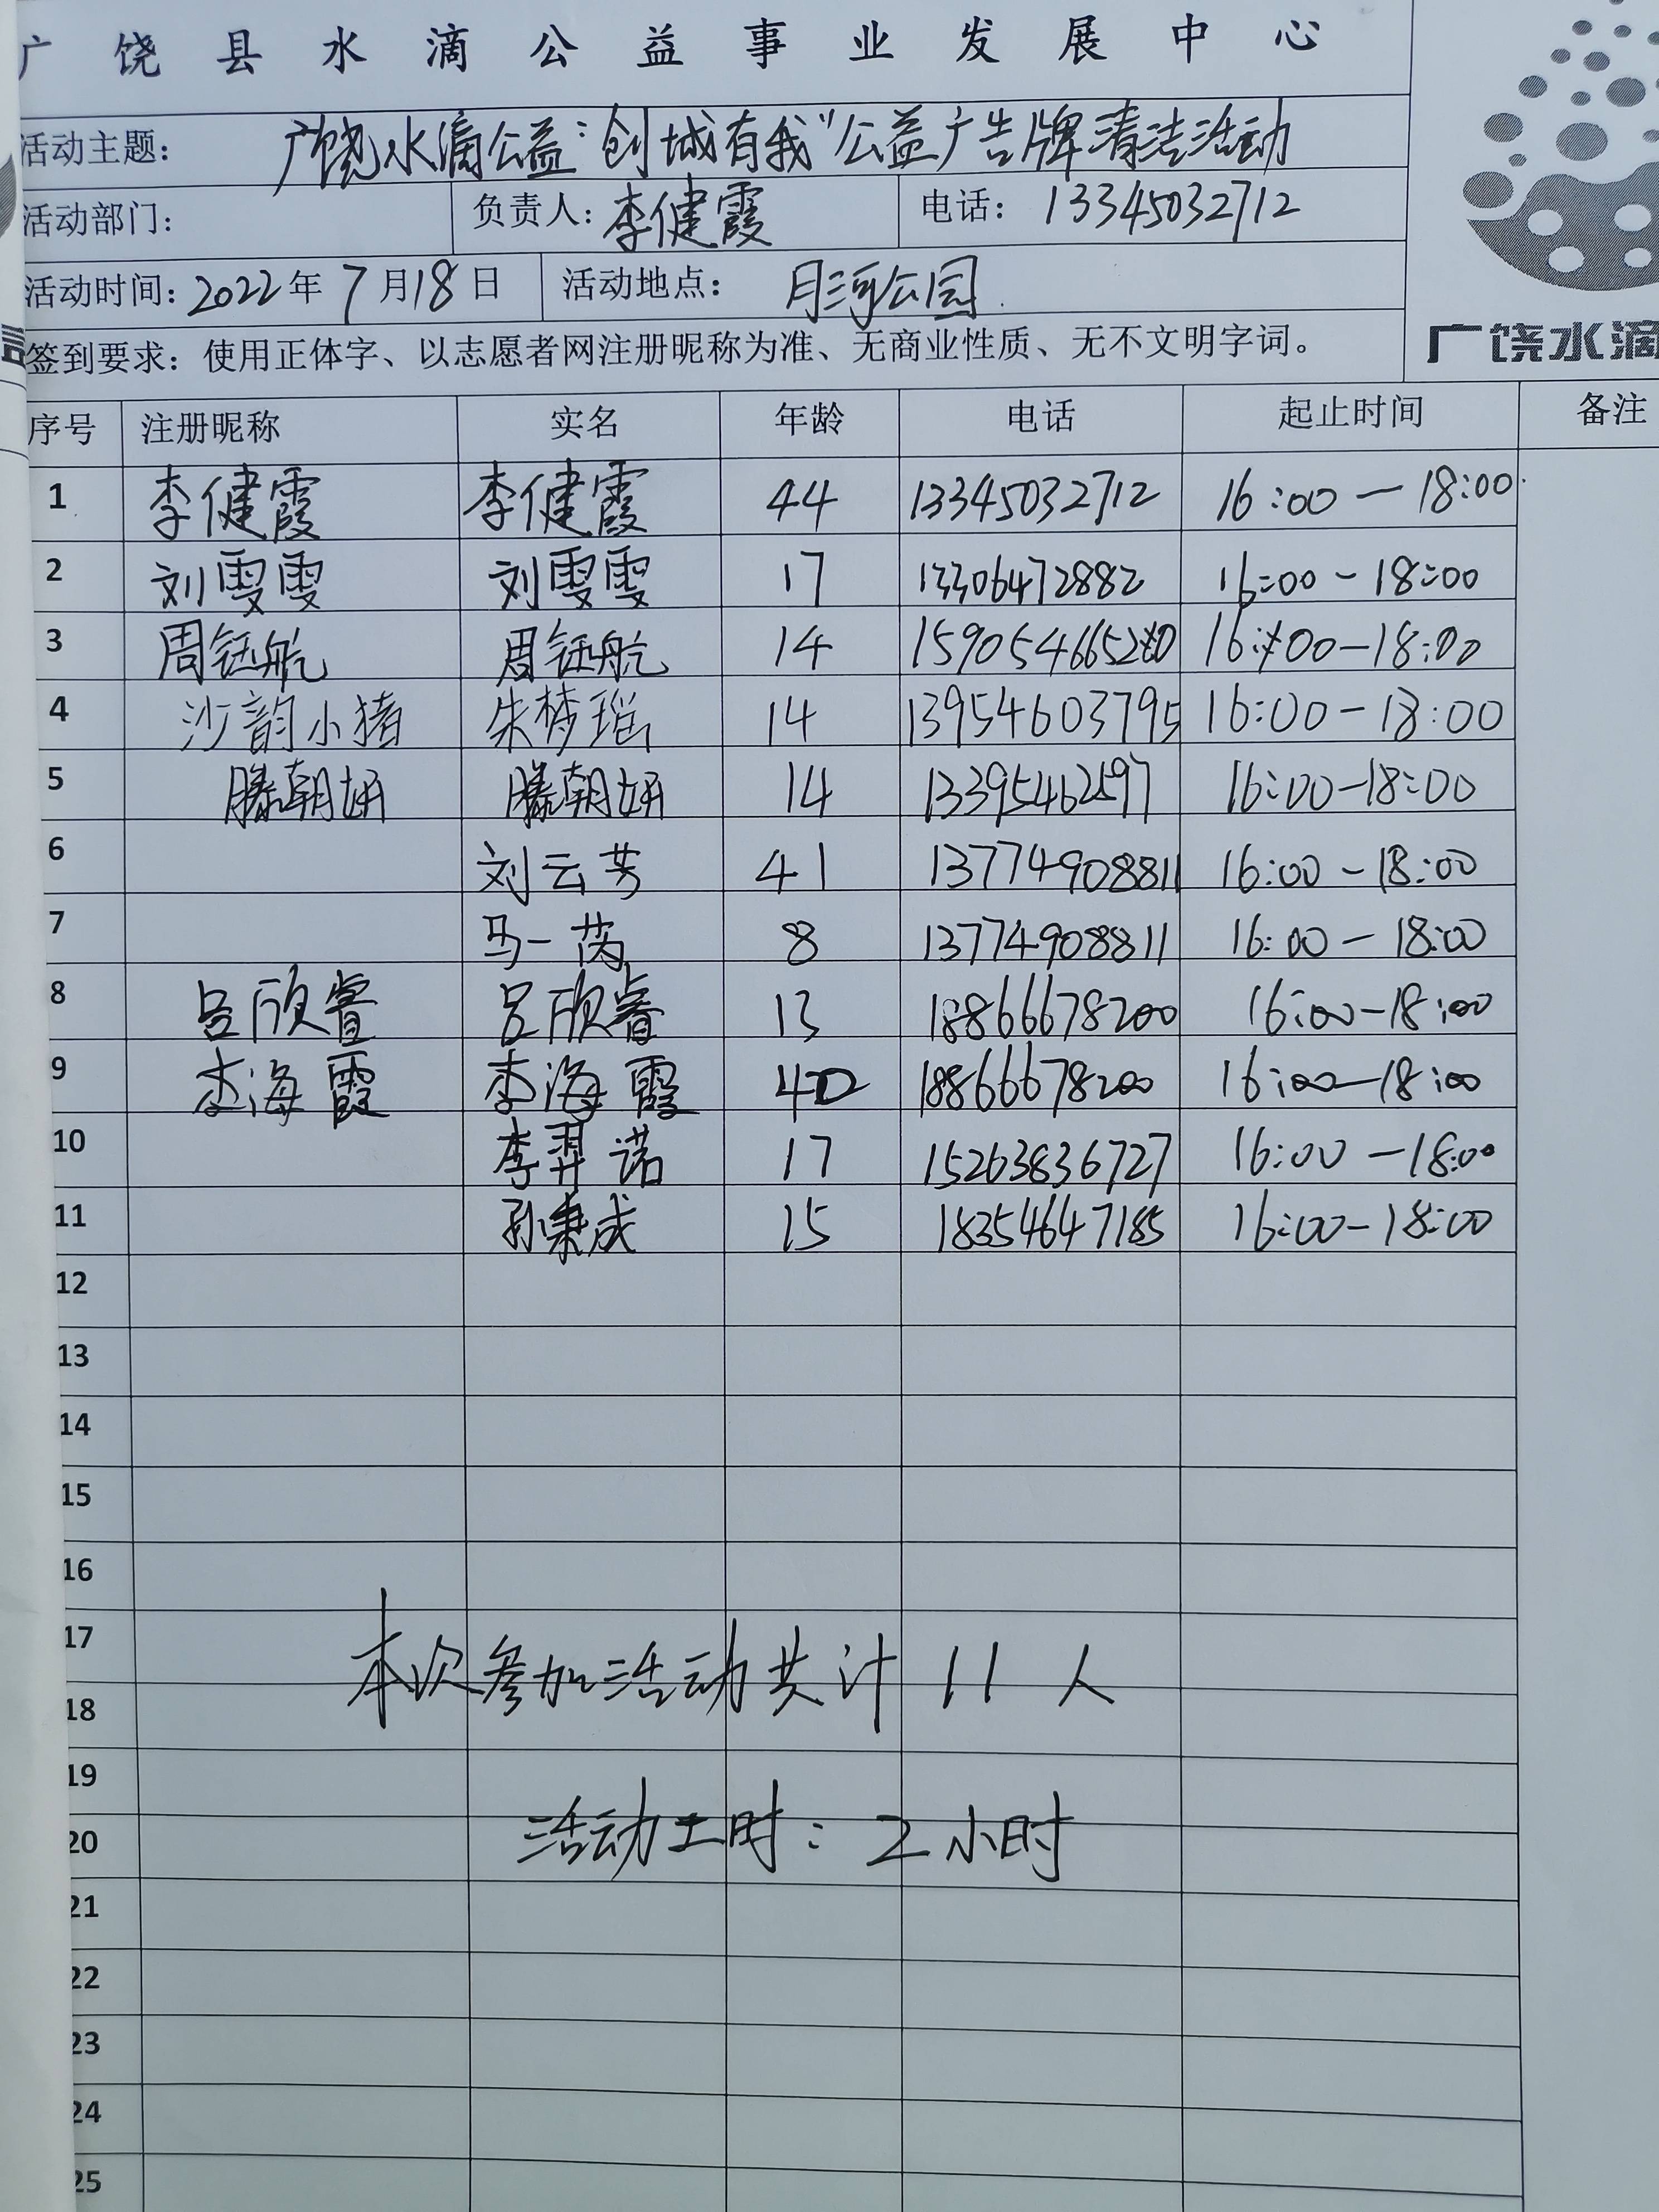 广饶县水滴公益事业发展中心
活动主题： 广饶水滴公益“创城有我”公益广告牌清洁活动
活动部门： 负责人：李健霞 电话：13345032712
活动时间：2022年7月18日 活动地点：月河公园
签到要求：使用正体字、以志愿者网注册昵称为准、无商业性质、无不文明字词。
广饶水滴
序号 注册昵称 实名 年龄 电话 起止时间 备注
1 李健霞 李健霞 44 13345032712 16:00-18:00
2 刘雯雯 刘雯雯 17 13306472882 16:00-18:00
3 周钰航 周钰航 14 16:00-18:00
4 沙韵小猪 朱梦瑶 14 13954603795 16:00-18:00
5 滕朝妍 滕朝妍 14 13395462597 16:00-18:00
6 刘云芳 41 13774908811 16:00-18:00
7 马一茵 8 13774908811 16:00-18:00
8 吕欣睿 吕欣睿 13 18866678200 16:00-18:00
9 李海霞 李海霞 40 18866678200 16:00-18:00
10 李羿诺 17 15263836727 16:00-18:00
11 孙秉成 15 18354647185 16:00-18:00
12
13
14
15
16
17
本次参加活动共计 11 人
18
19
20 活动工时：2小时
21
22
23
24
25